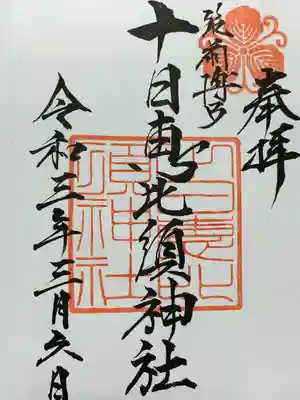 奉拝
筑前博多
十日恵比須神社
令和三年三月六日
十日恵比
須神社